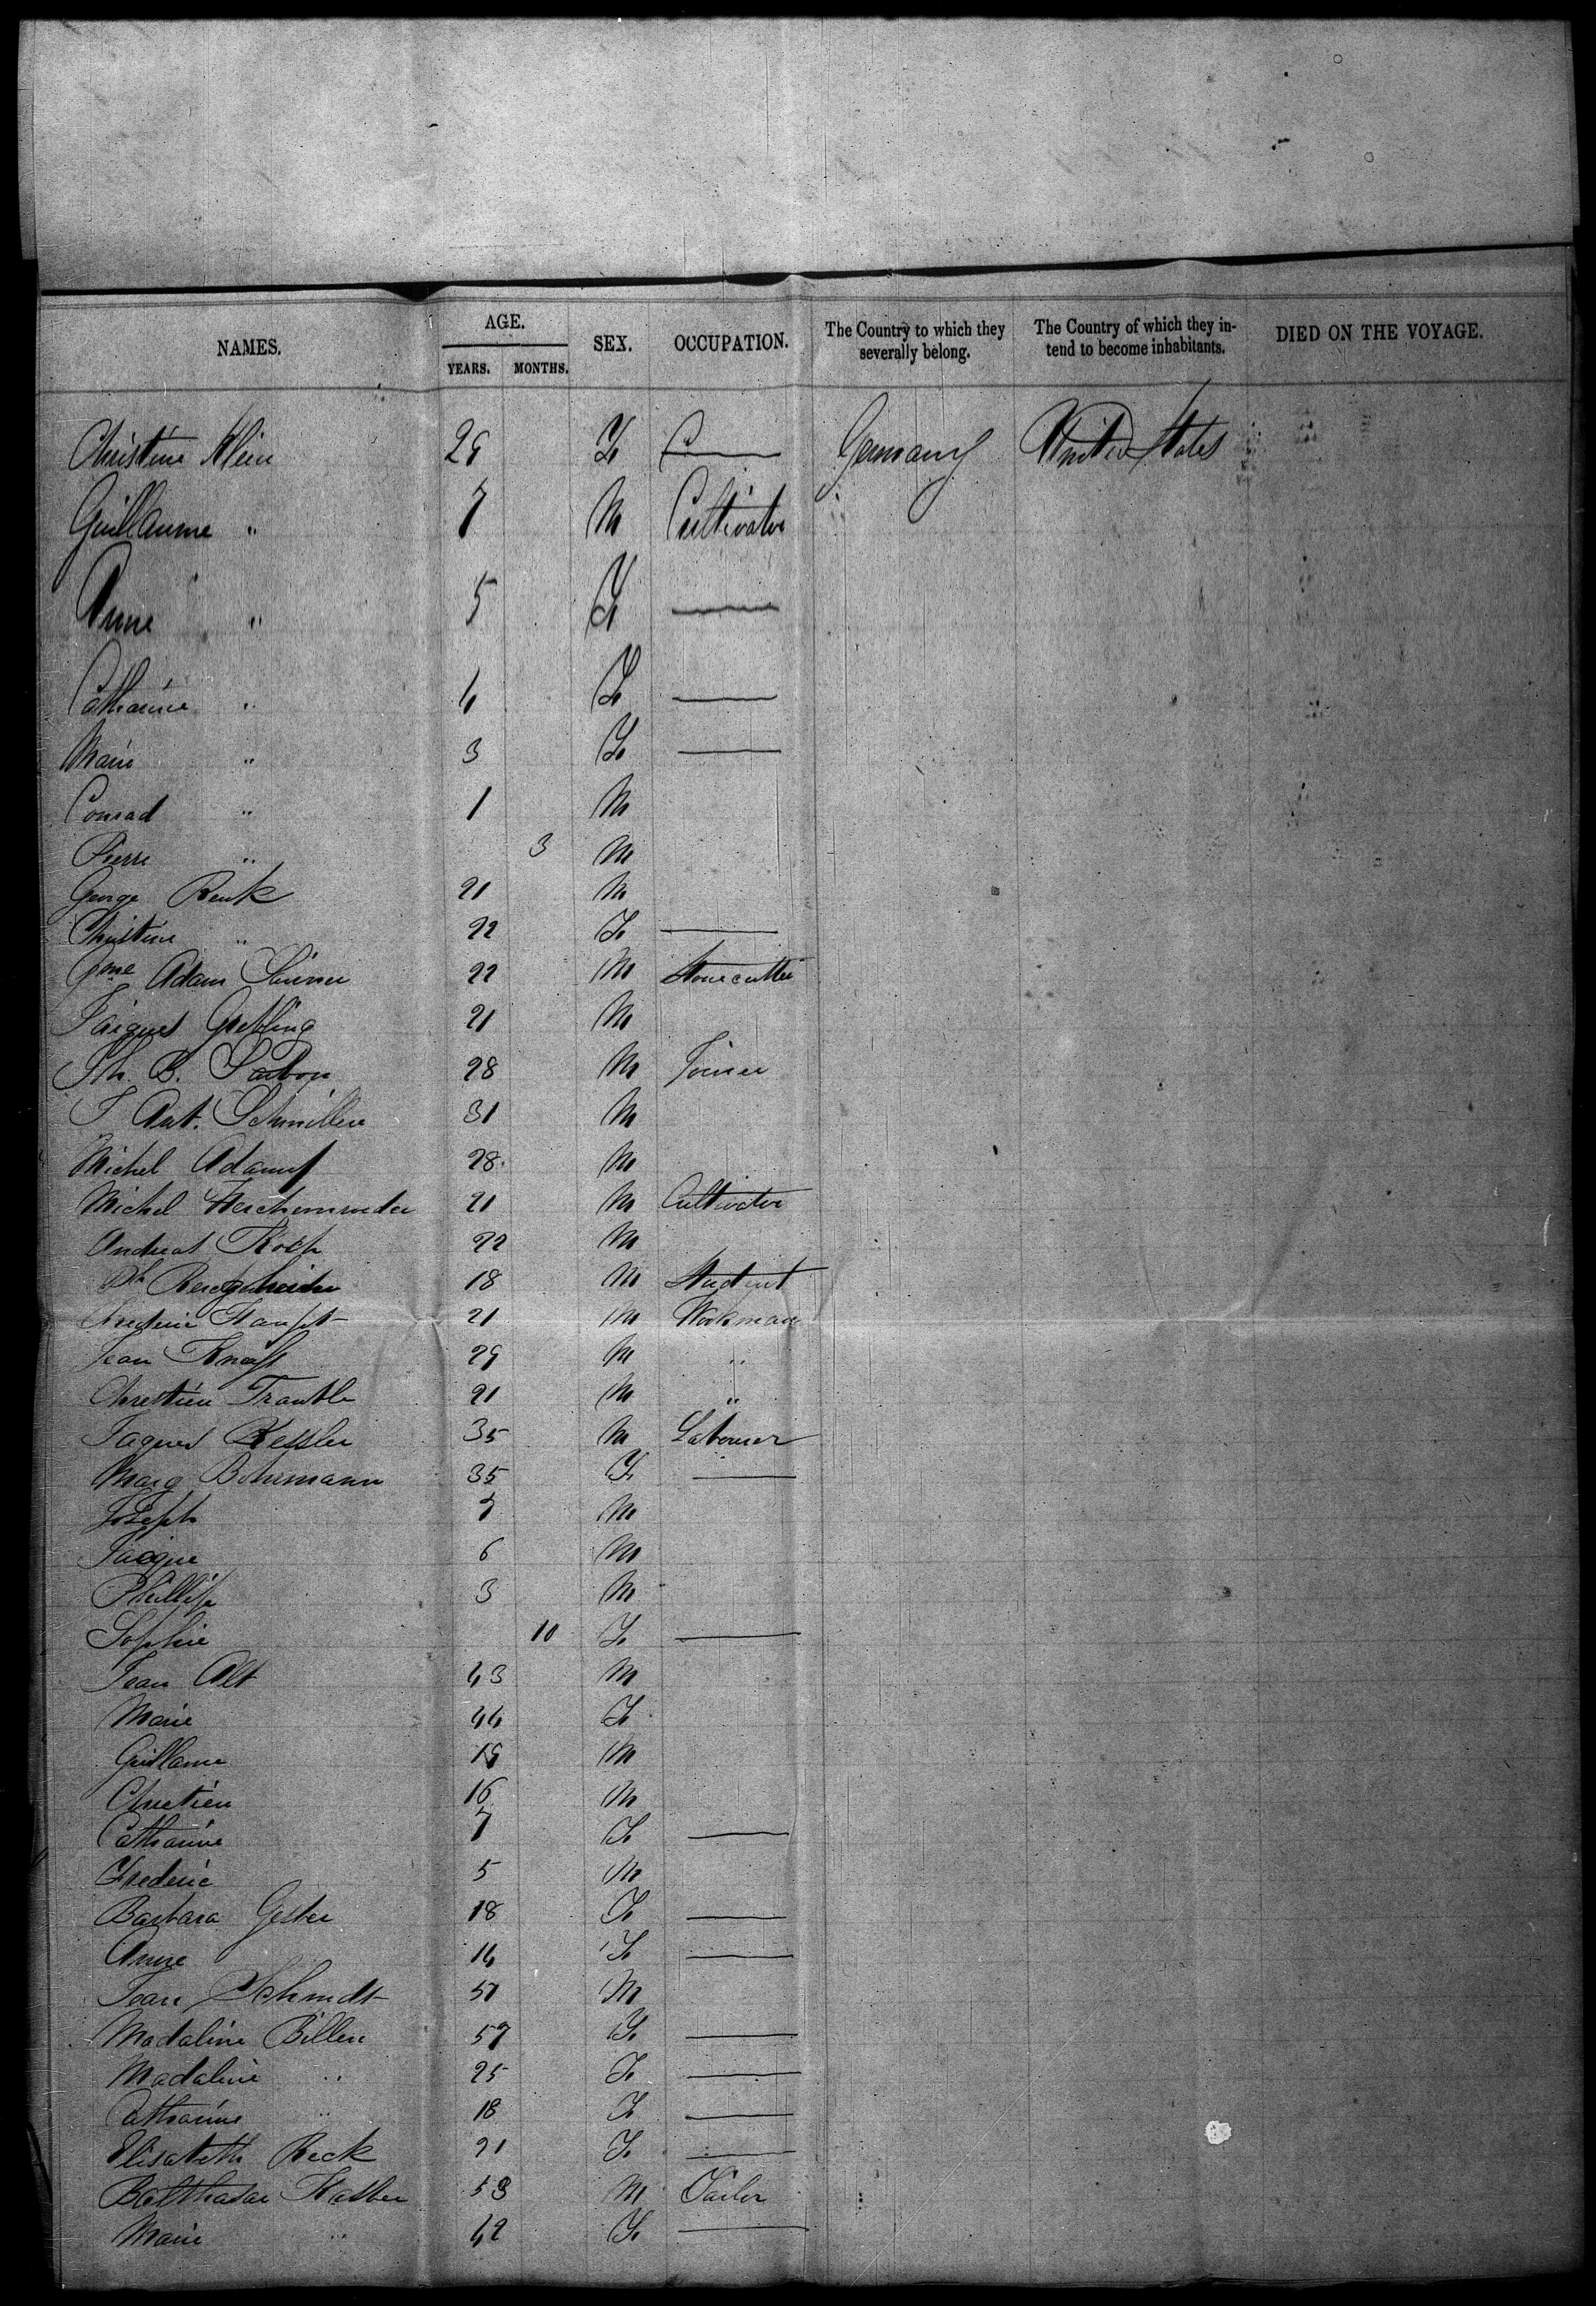 NAMES. AGE. YEARS. MONTHS. SEX. OCCUPATION. The Country to which they severally belong. The Country of which they intend to become inhabitants. DIED ON THE VOYAGE.
Christine Klein 29 F Germany United States
Guillaume " 7 M Cultivator
Anne " 5 F
Catharine " 4 F
Marie " 3 F
Conrad " 1 M
Pierre " 3 M
George Renk 21 M
Christine " 22 F
Gme Adam 22 M Stonecutter
Jaques Gretling 21 M
Ph. B. 28 M Joiner
J Ant. Schmiller 31 M
Michel Adams 28 M
Michel 21 M Cultivator
Andreas Koch 22 M
Ph 18 M Student
Frederic Haupt 21 M Workman
Jean Knaff 29 M "
Chrestien Trautle 21 M "
Jaques Kessler 35 M Labourer
Marg Bohrmann 35 F
Joseph 7 M
Jacque 6 M
Phillip 3 M
Sophie 10 F
Jean Alt 43 M
Marie 44 F
Guillame 19 M
Chretien 16 M
Catharine 7 F
Frederic 5 M
Barbara Gester 18 F
Anne 14 F
Jean Schmdt 51 M
Madaline Biller 57 F
Madaline " 25 F
Catharine " 18 F
Elisabeth Reck 21 F
Balthasar Kasber 53 M Tailor
Marie " 42 F